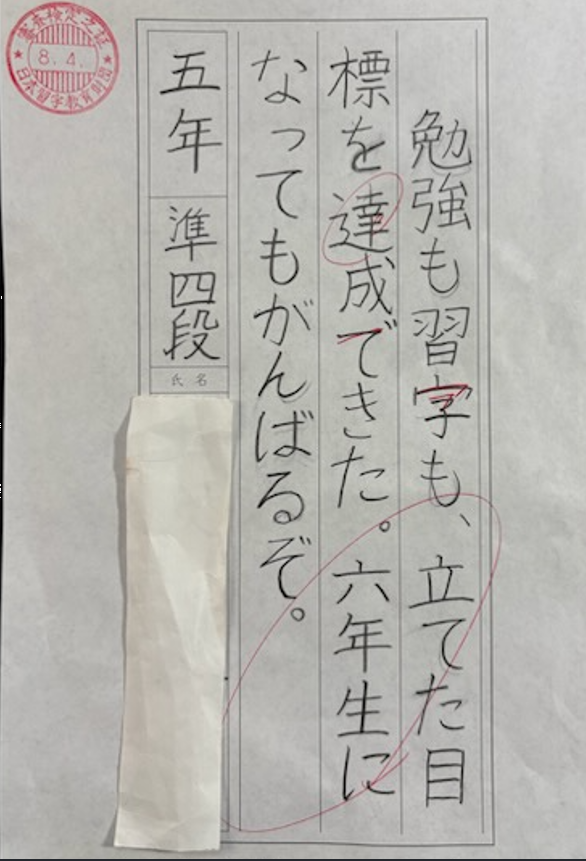 勉強も習字も、立てた目
標を達成できた。六年生に
なってもがんばるぞ。
五年 準四段
氏名
8.4.
日本習字教育財団